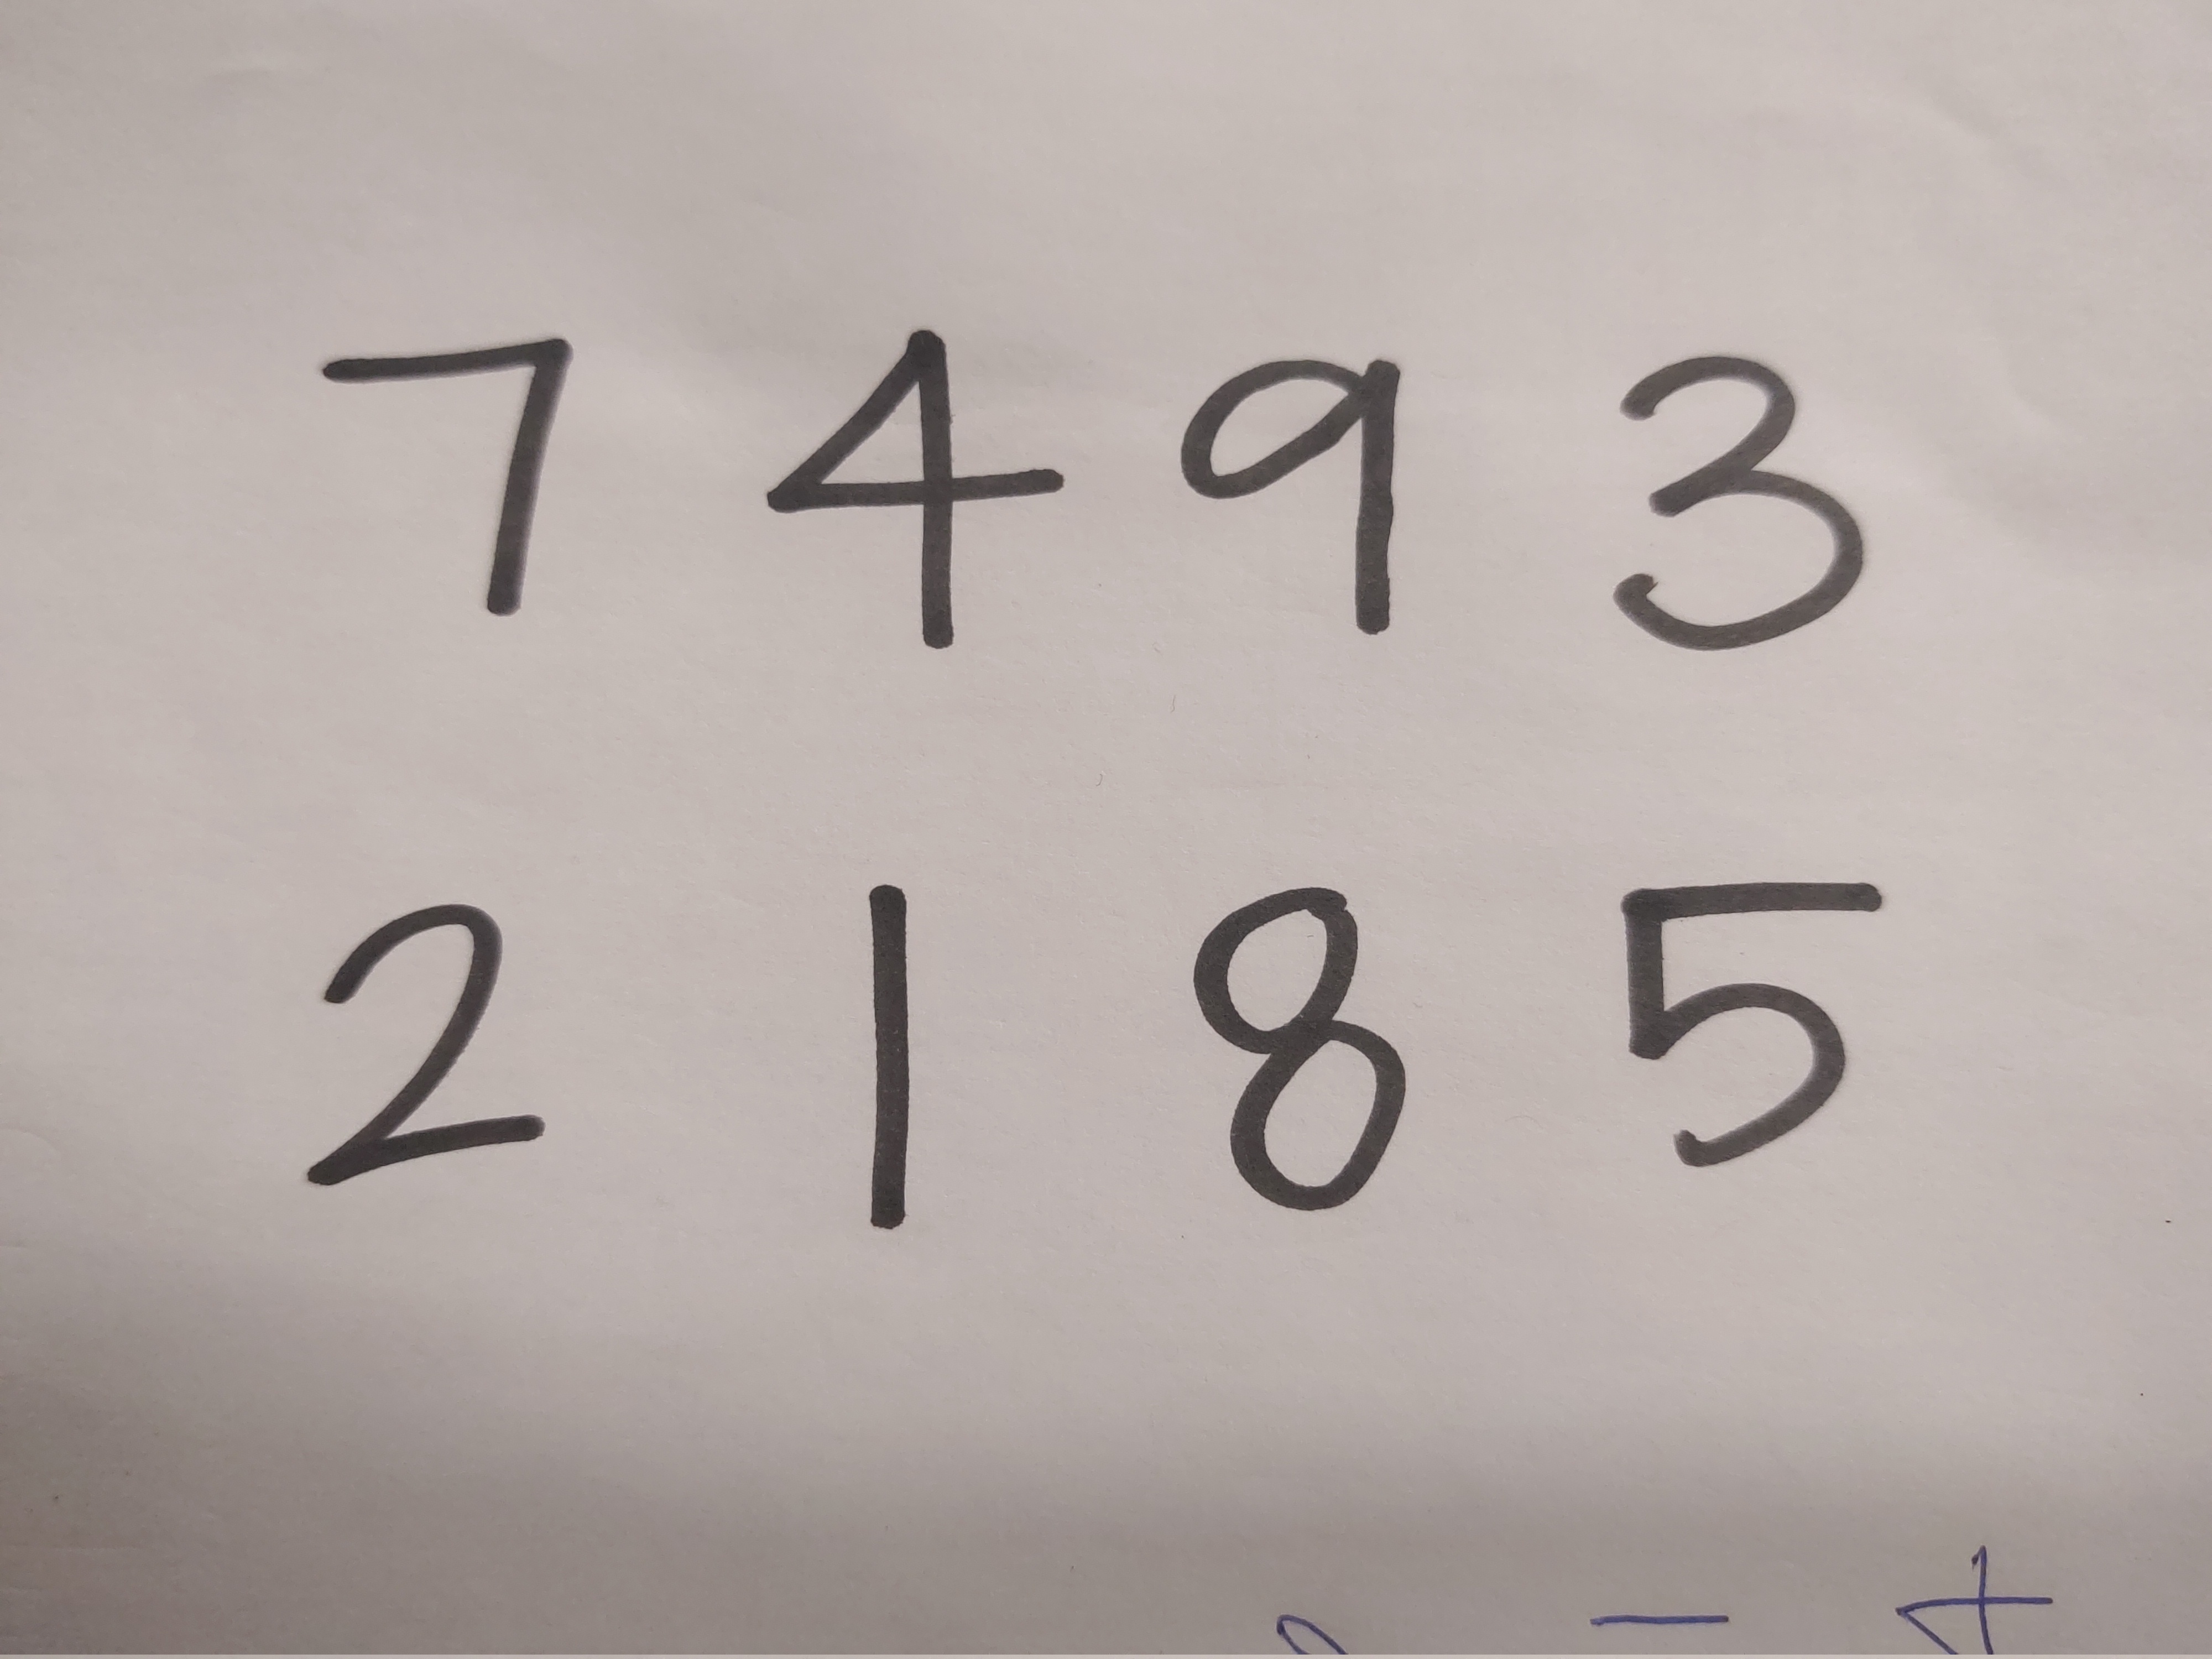 7 4 9 3
2 1 8 5